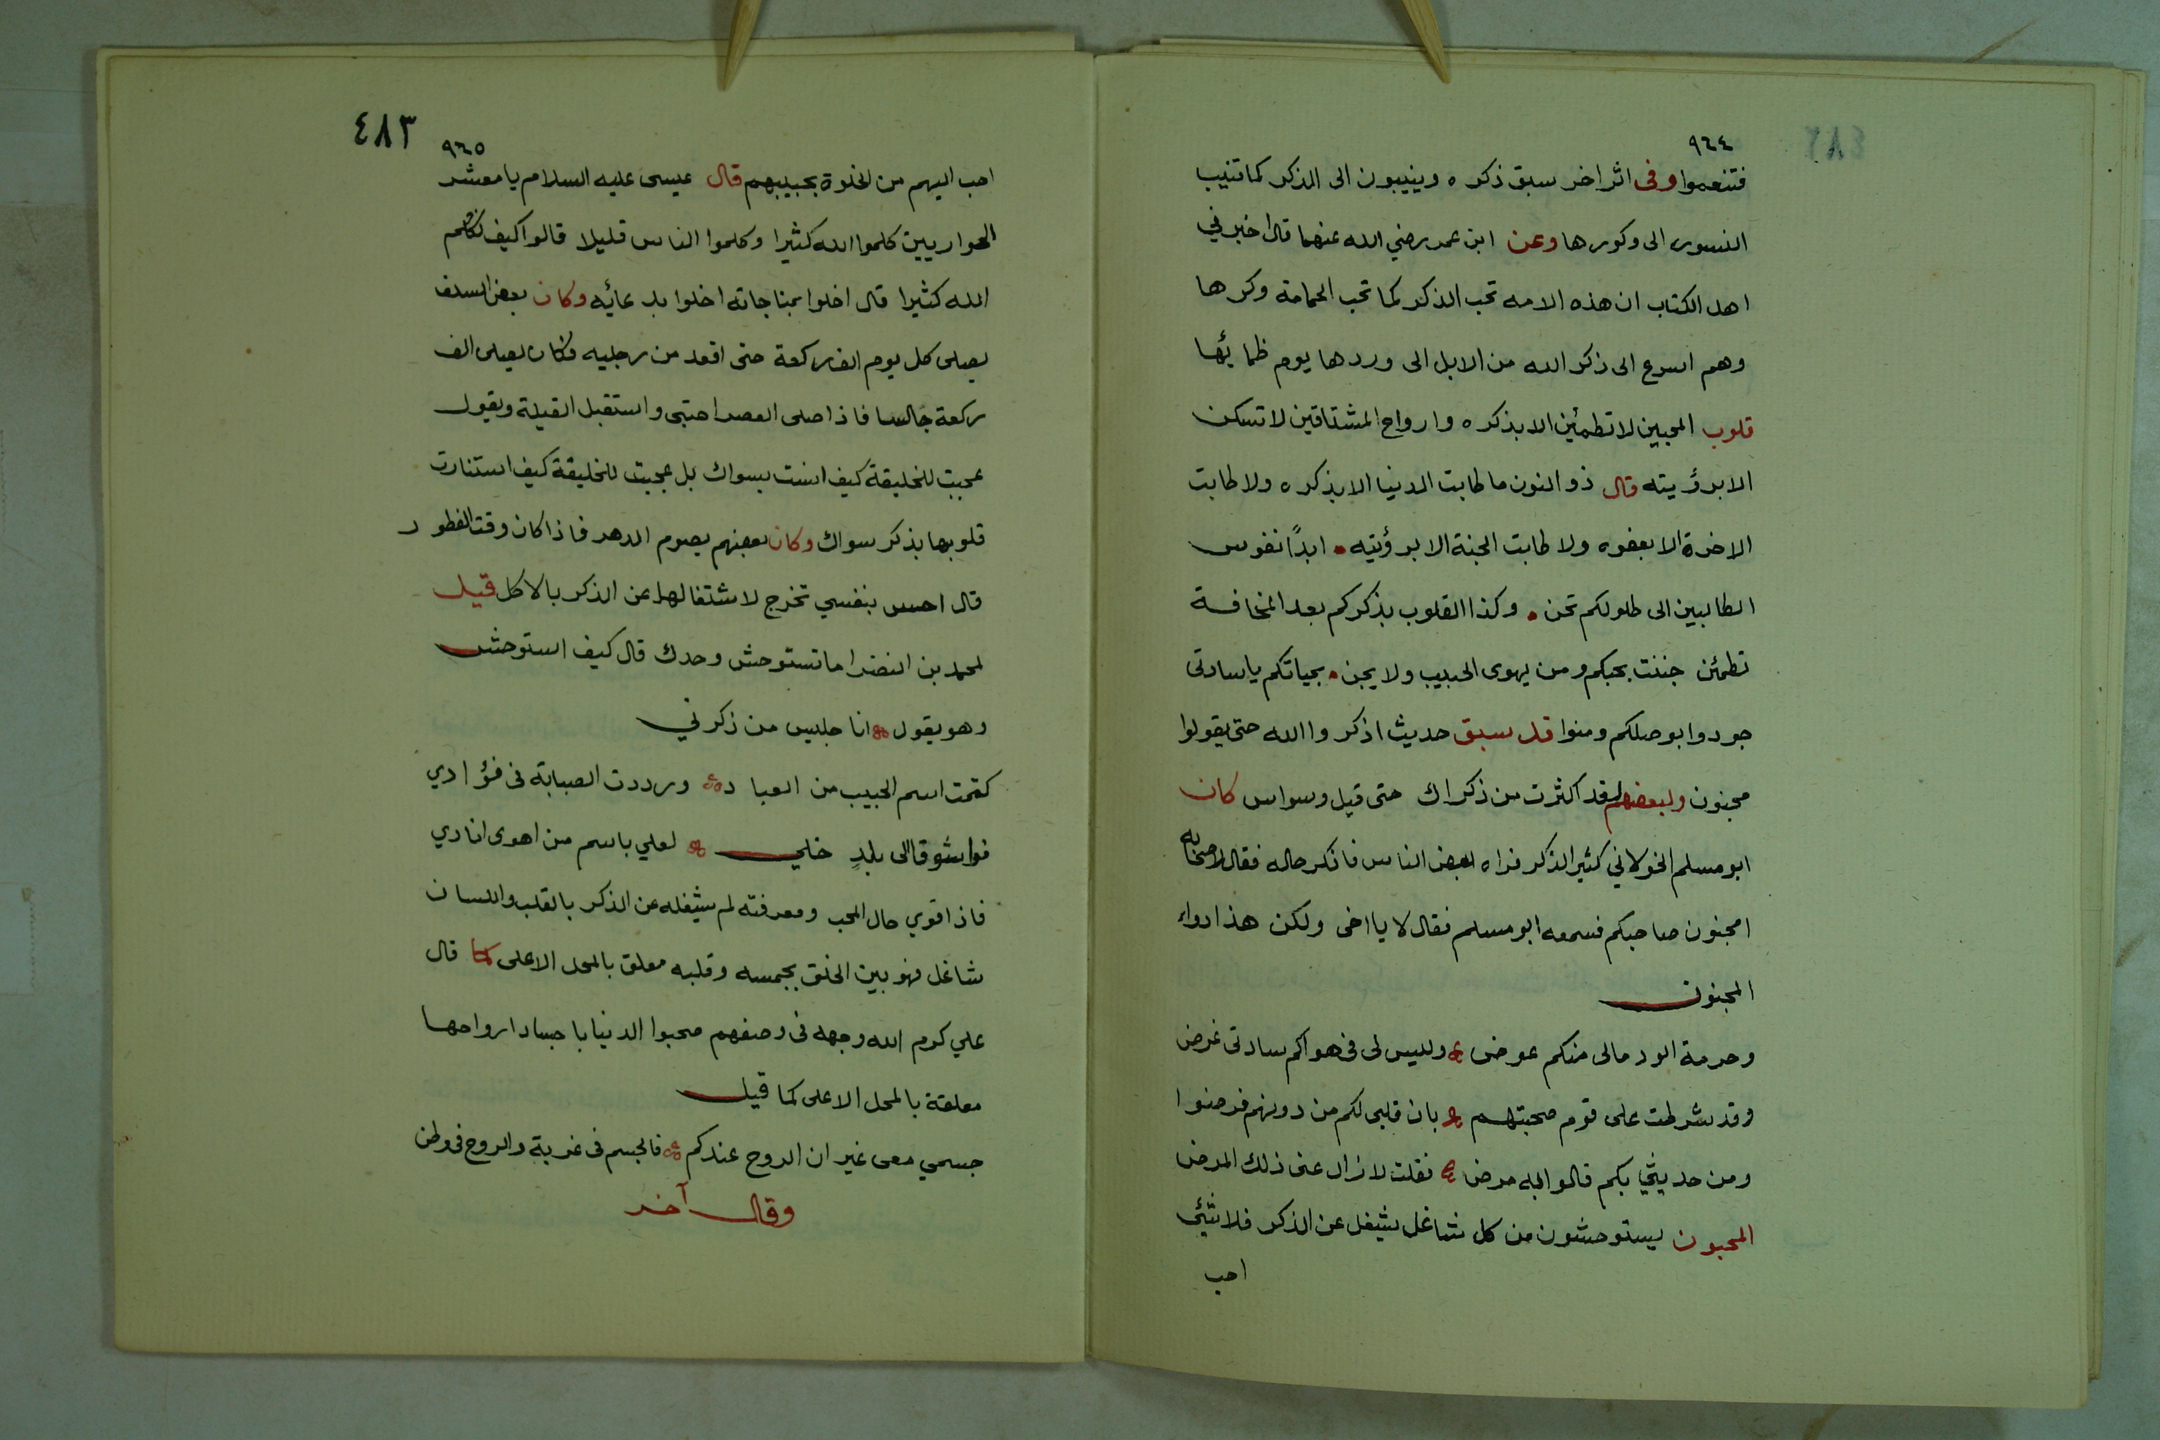 ٩٦٤
فتنعموا وفى اثر اخر سبق ذكره وينيبون الى الذكر كما تنيب
النسور الى وكورها وعن ابن عمر رضي الله عنهما قال اخبرني
اهل الكتاب ان هذه الامه تحب الذكر كما تحب الحمامة وكرها
وهم اسرع الى ذكر الله من الابل الى وردها يوم ظمائها
قلوب المحبين لا تطمئن الا بذكره وارواح المشتاقين لا تسكن
الا برؤيته قال ذو النون ما طابت الدنيا الا بذكره ولا طابت
الاخرة الا بعفوه ولا طابت الجنة الا برؤيته • ابدًا نفوس
الطالبين الى طلولكم تحن • وكذا القلوب بذكركم بعد المخافة
تطمئن جننت بحبكم ومن يهوى الحبيب ولا يجن • بحياتكم يا سادتى
جودوا بوصلكم ومنوا قد سبق حديث اذكروا الله حتى يقولوا
مجنون ولبعضهم لقد اكثرت من ذكراك حتى قيل وسواس كان
ابو مسلم الخولاني كثير الذكر فراه بعض الناس فانكر حاله فقال لاصحابه
امجنون صاحبكم فسمعه ابو مسلم فقال لا يا اخى ولكن هذا دواء
المجنون
وحرمة الود مالى منكم عوض وليس لى فى هواكم سادتى غرض
وقد شرطت على قوم صحبتهم بان قلبى لكم من دونهم فرضوا
ومن حديثي بكم قالوا به مرض فقلت لا زال عنى ذلك المرض
المحبون يستوحشون من كل شاغل يشغل عن الذكر فلا شئ
احب
٤٨٣
٩٦٥
احب اليهم من الخلوة بحبيبهم قال عيسى عليه السلام يا معشر
الحواريين كلموا الله كثيرا وكلموا الناس قليلا قالوا كيف نكلم
الله كثيرا قال اخلوا بمناجاته اخلوا بدعائه وكان بعض السلف
يصلى كل يوم الف ركعة حتى اقعد من رجليه فكان يصلى الف
ركعة جالسا فاذا صلى العصر احتبى واستقبل القبلة ويقول
عجبت للخليقة كيف انست بسواك بل عجبت للخليقة كيف استنارت
قلوبها بذكر سواك وكان بعضهم يصوم الدهر فاذا كان وقت الفطور
قال احس بنفسي تخرج لاشتغالها عن الذكر بالاكل قيل
لمحمد بن النضر اما تستوحش وحدك قال كيف استوحش
وهو يقول انا جليس من ذكرني
كتمت اسم الحبيب من العباد ورددت الصبابة فى فؤادي
فواشوقا الى بلدٍ خلي لعلي باسم من اهوى انادي
فاذا قوي حال المحب ومعرفته لم يشغله عن الذكر بالقلب واللسان
شاغل فهو بين الخلق بجسمه وقلبه معلق بالمحل الاعلى كما قال
علي كرم الله وجهه فى وصفهم صحبوا الدنيا باجساد ارواحها
معلقة بالمحل الاعلى كما قيل
جسمي معى غير ان الروح عندكم فالجسم فى غربة والروح فى وطن
وقال آخر